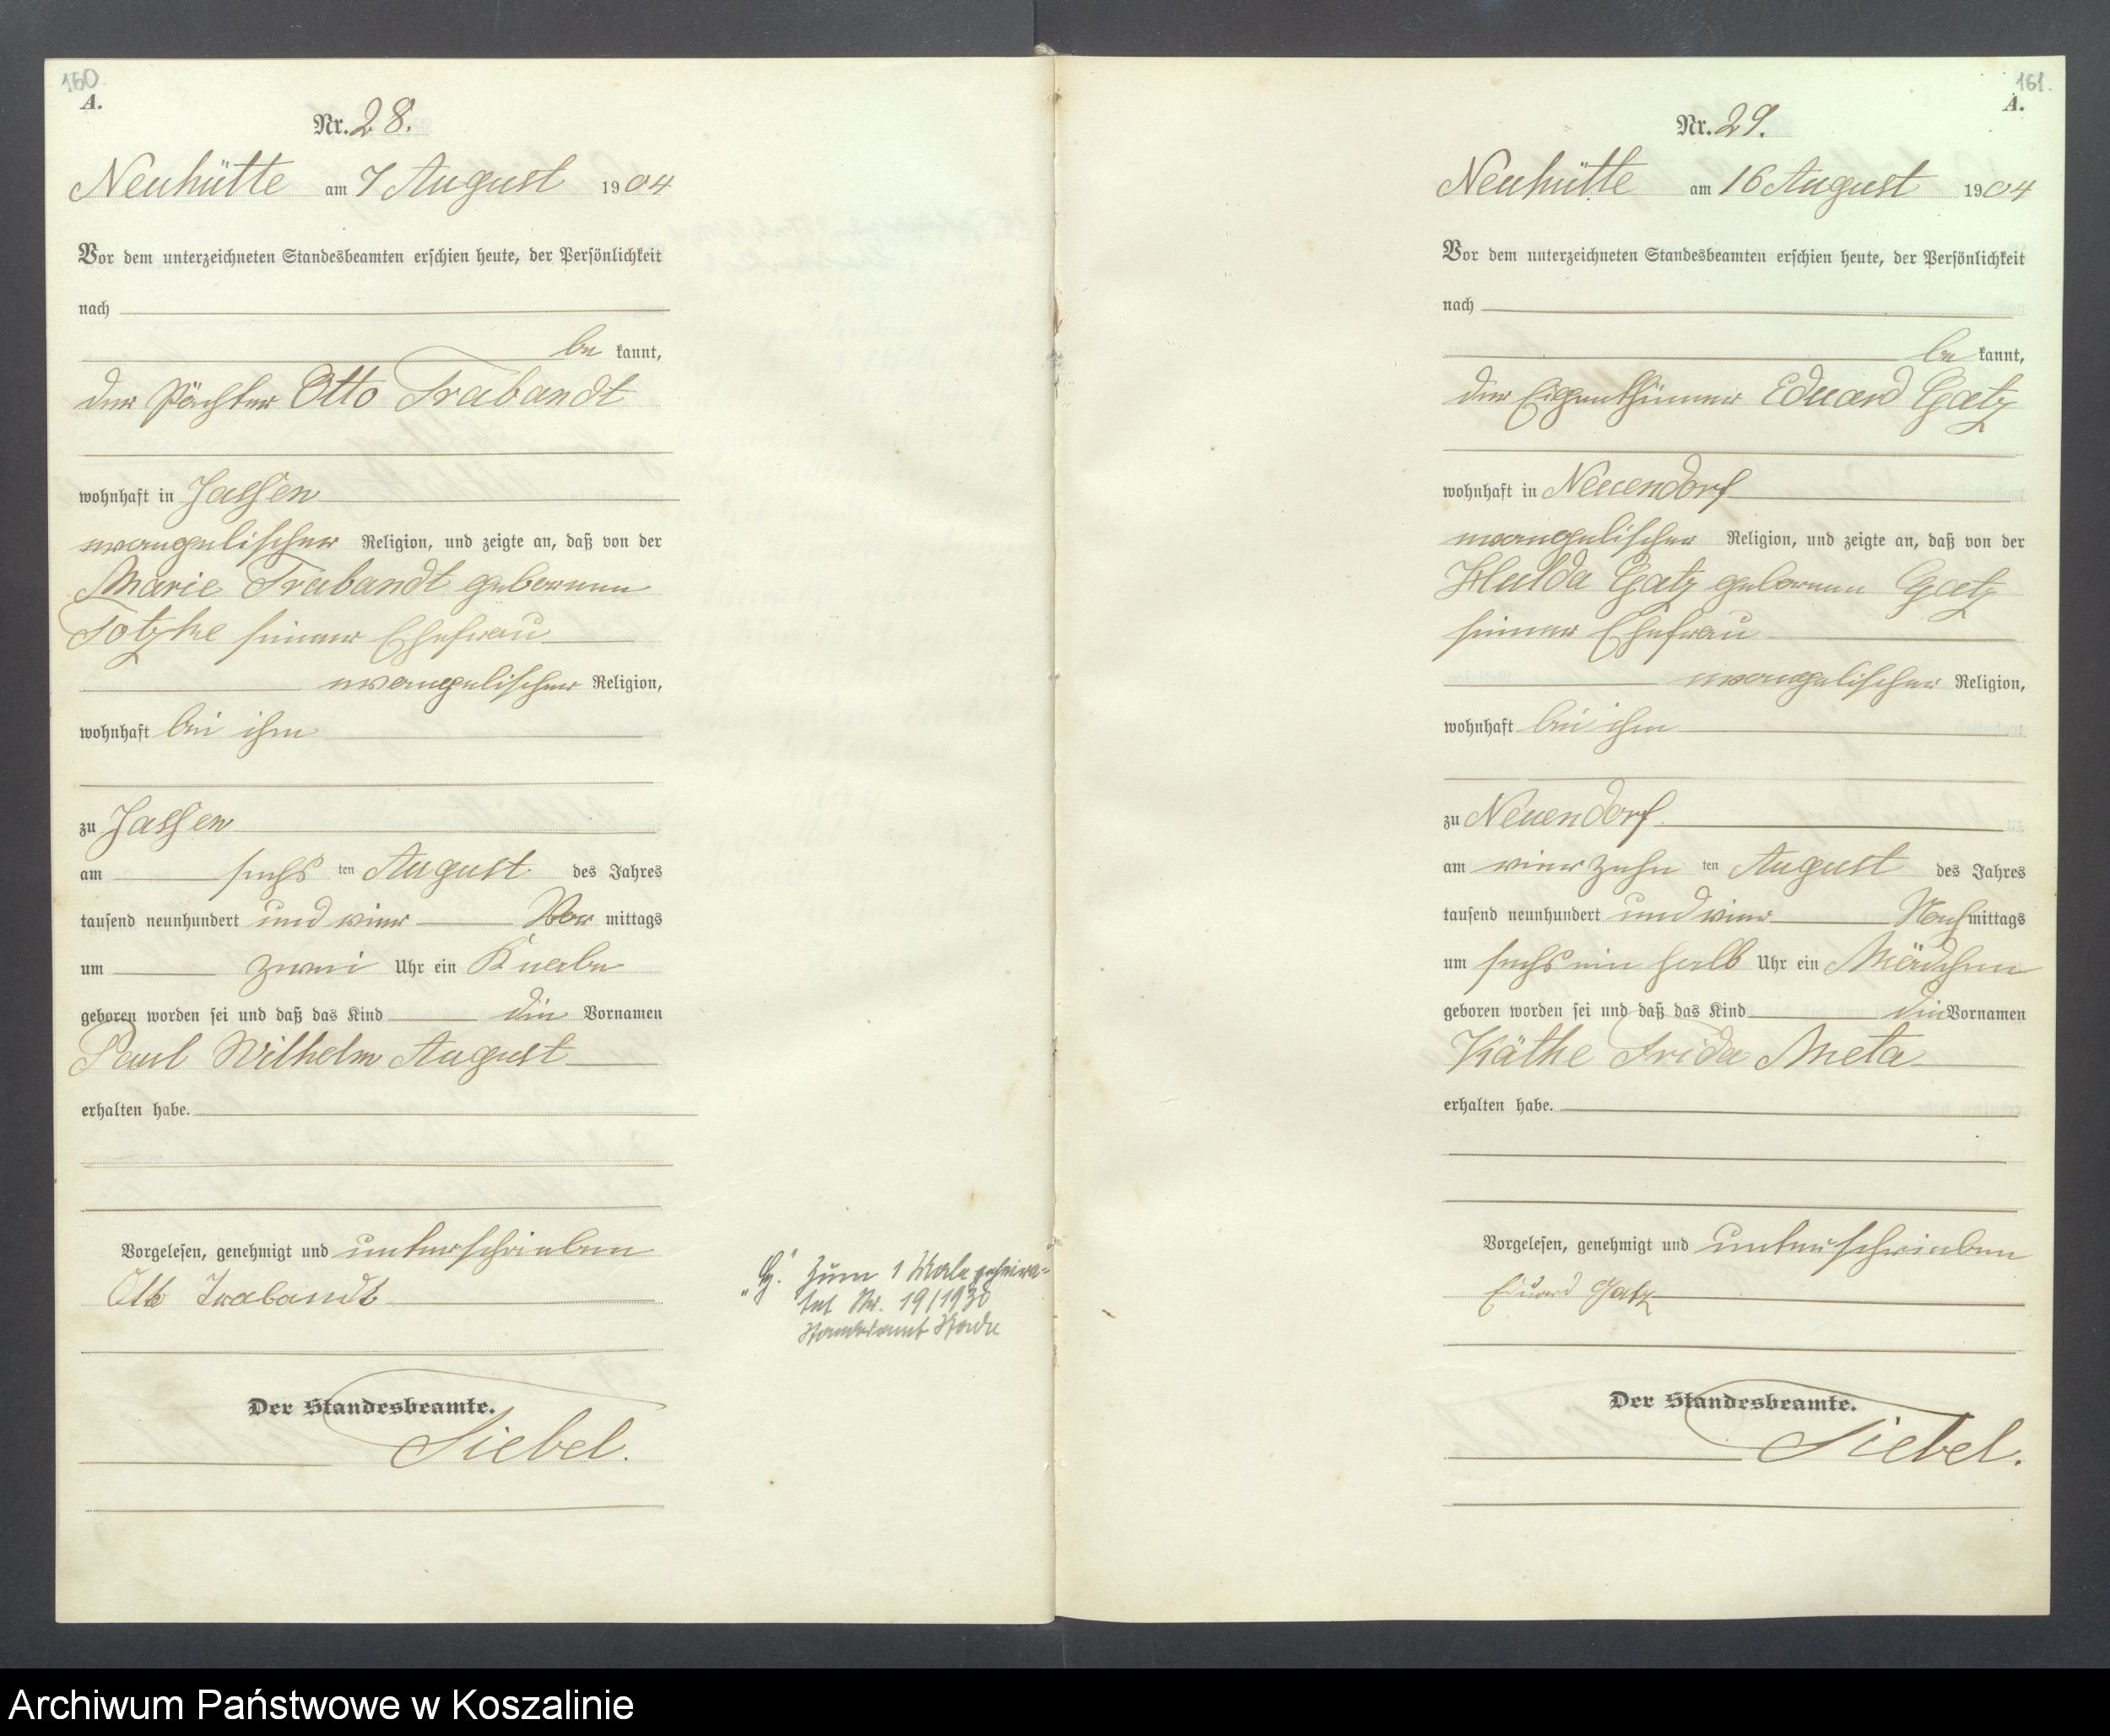 160.
A.
Nr. 28.
Neuhütte am 7 August 1904
Vor dem unterzeichneten Standesbeamten erschien heute, der Persönlichkeit
nach
be kannt,
der Pächter Otto Trabandt
wohnhaft in Jassen
evangelischer Religion, und zeigte an, daß von der
Marie Trabandt geborenen
Totzke seiner Ehefrau
evangelischer Religion,
wohnhaft bei ihm
zu Jassen
am sechs ten August des Jahres
tausend neunhundert und vier Vor mittags
um zwei Uhr ein Knabe
geboren worden sei und daß das Kind die Vornamen
Paul Wilhelm August
erhalten habe.
Vorgelesen, genehmigt und unterschrieben
Otto Trabandt
Der Standesbeamte.
Siebel.
zum 1 Male geheira-
tet Nr. 19/1930
Standesamt Stade
161.
A.
Nr. 29.
Neuhütte am 16 August 1904
Vor dem unterzeichneten Standesbeamten erschien heute, der Persönlichkeit
nach
be kannt,
der Eigenthümer Eduard Gatz
wohnhaft in Neuendorf
evangelischer Religion, und zeigte an, daß von der
Hulda Gatz geborenen Gatz
seiner Ehefrau
evangelischer Religion,
wohnhaft bei ihm
zu Neuendorf
am vierzehn ten August des Jahres
tausend neunhundert und vier Nach mittags
um sechs ein halb Uhr ein Mädchen
geboren worden sei und daß das Kind die Vornamen
Käthe Frida Meta
erhalten habe.
Vorgelesen, genehmigt und unterschrieben
Eduard Gatz
Der Standesbeamte.
Siebel.
Archiwum Państwowe w Koszalinie